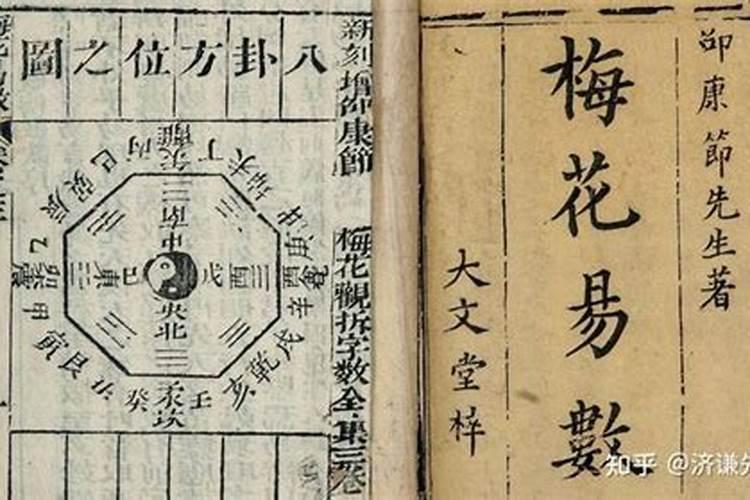 卲康節先生著
梅花易數
大文堂梓
新刻增卲康節 梅花觀拆字數全集三卷
八卦方位之圖
離午
丁
未坤申
庚
酉兌
辛
戌乾亥
壬
子坎
癸
丑艮寅
甲
卯震
乙
辰巽巳
丙
南
中
戊
西
東
己
央
北
知乎 @济谦先